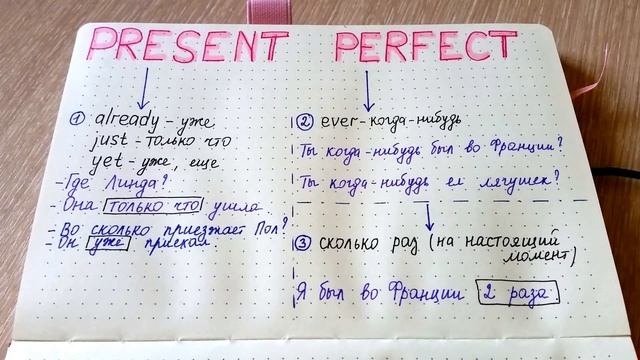 PRESENT PERFECT
① already - уже
just - только что
yet - уже, еще
- Где Линда?
- Она только что ушла
- Во сколько приезжает Пол?
- Он уже приехал
② ever - когда-нибудь
Ты когда-нибудь был во Франции?
Ты когда-нибудь ел лягушек?
③ сколько раз (на настоящий
момент)
Я был во Франции 2 раза.